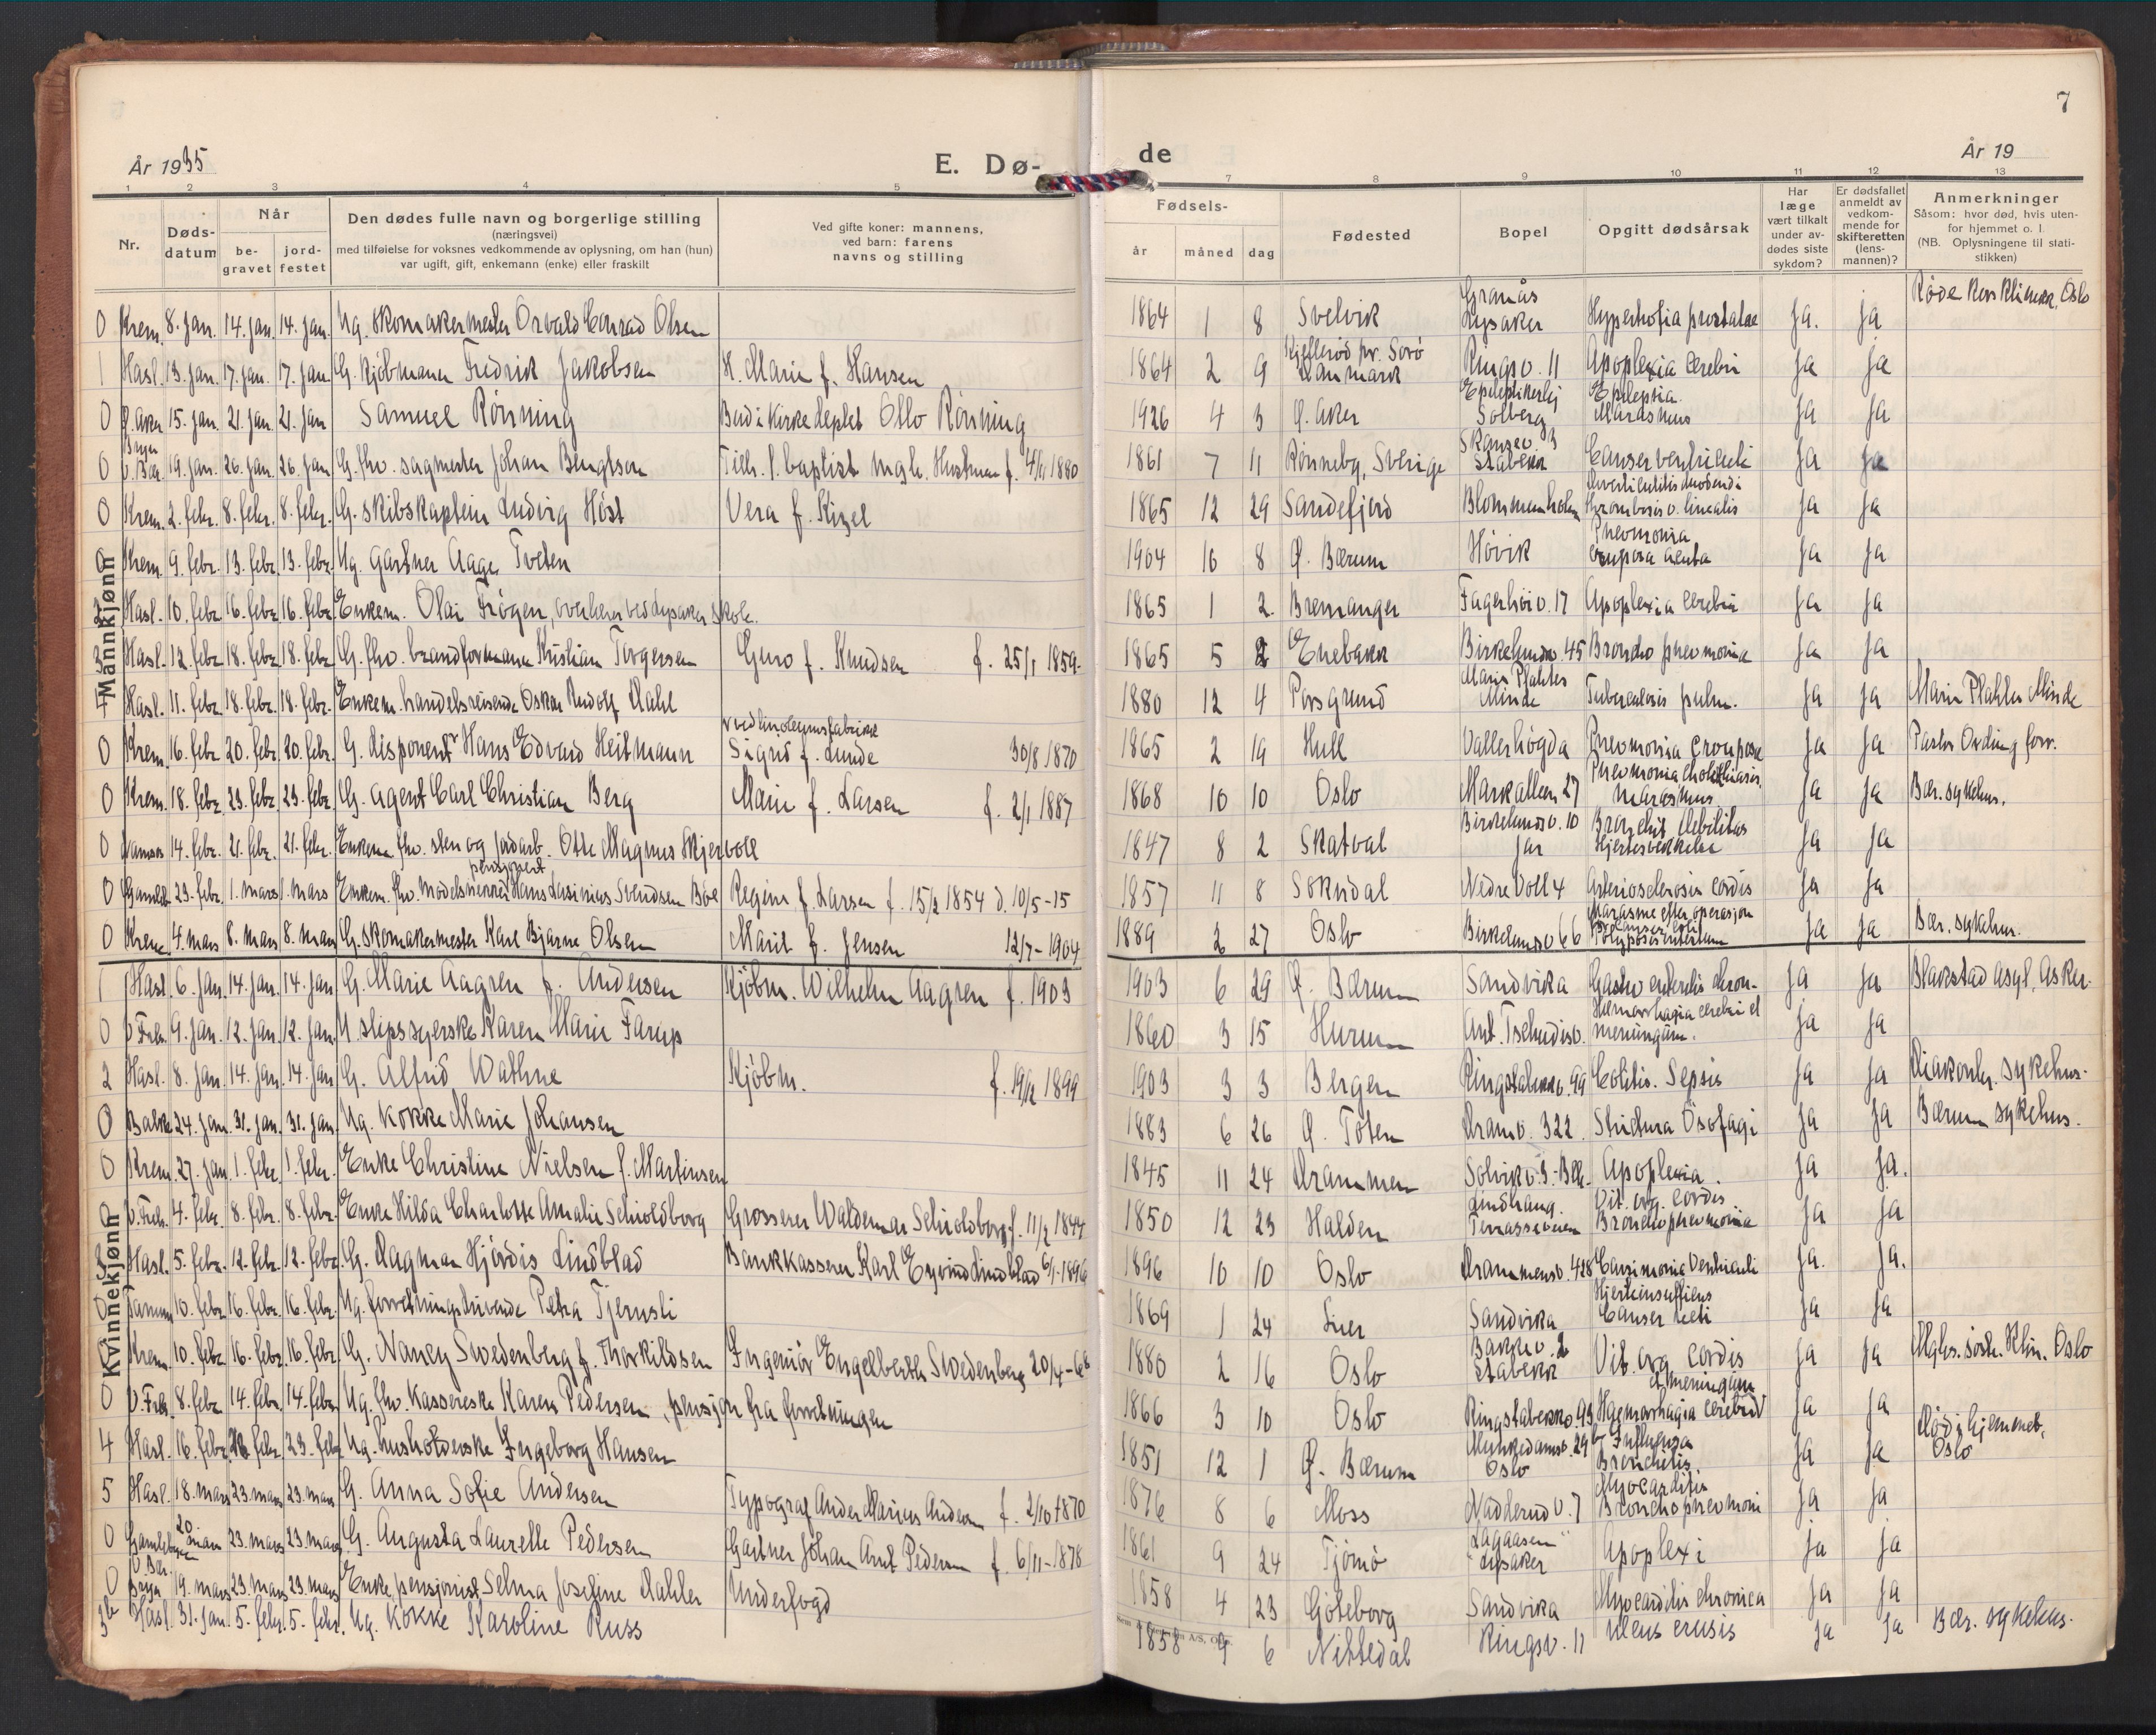 7
År 1935 E. Dø- de År 19
1 2 3 4 5 7 8 9 10 11 12 13
Nr. Dødsdatum Når begravet jordfestet
Den dødes fulle navn og borgerlige stilling
(næringsvei)
med tilføielse for voksnes vedkommende av oplysning, om han (hun)
var ugift, gift, enkemann (enke) eller fraskilt
Ved gifte koner: mannens,
ved barn: farens
navns og stilling
Fødsels-
år måned dag
Fødested
Bopel
Opgitt dødsårsak
Har læge vært tilkalt under avdødes siste sykdom?
Er dødsfallet anmeldt av vedkommende for skifteretten (lensmannen)?
Anmerkninger
Såsom: hvor død, hvis utenfor hjemmet o. l.
(NB. Oplysningene til statistikken)
Mannkjønn
0 Krem. 8. jan. 14. jan. 14. jan. Ug. skomakermester Osvald Conrad Olsen 1864 1 8 Svelvik Granås Lysaker Hypertrofia prostatae ja. ja Røde Kors Klinikk, Oslo
1 Hasl. 13. jan. 17. jan. 17. jan. G. kjøbmann Fredrik Jakobsen H. Marie f. Hansen 1864 2 9 pr. Sorø Danmark Ringsv. 11 Apoplexia cerebri ja ja
0 Ø. Aker 15. jan. 21. jan. 21. jan Samuel Rønning Bud i Kirkedeptet Otto Rønning 1926 4 3 Ø. Aker Solberg Epilepsia. Marasmus ja ja
0 Bryn V. Bær. 19. jan. 26. jan. 26. jan G. fhv. sagmester Johan Bengtson Tilh. baptist mgh. Hustruen f. 4/11 1880 1861 7 11 Rønneby, Sverige Skansev. 3 Stabekk Cancer ventriculi ja ja
0 Krem. 2. febr. 8. febr. 8. febr. G. skibskaptein Ludvig Høst Vera f. Kizel 1865 12 29 Sandefjord Blommenholm ja ja
0 Krem. 9. febr. 13. febr. 13. febr. Ug. gartner Aage Tveten 1904 10 8 Ø. Bærum Høvik Pneomonia cruposa acuta ja ja
2 Hasl. 10. febr. 16. febr. 16. febr. Enkem. Olai Frøgen, overlærer ved Lysaker skole. 1865 1 2. Bremanger Fagerhøiv. 17 Apoplexia cerebri ja ja
3 Hasl. 12. febr. 18. febr. 18. febr. G. fhv. brandformann Kristian Torgersen Guro f. Knudsen f. 25/1 1859- 1865 5 2 Enebakk Birkelundv. 45 Broncho pneomonia ja ja
4 Hasl. 11. febr. 18. febr. 18. febr. Enkem. handelsreisende Oskar Rudolf Dahl 1880 12 4 Porsgrund Marie Plahtes Minde Tuberculosis pulm. ja ja Marie Plahtes Minde
0 Krem. 16. febr. 20. febr. 20. febr. G. disponent Hans Edvard Heitmann ved linoleumsfabrikk Sigrid f. Lunde 30/8 1870 1865 2 19 Hull Vallerhøgda Pneomonia croupose ja ja Pastor Ording forr.
0 Krem. 18. febr. 23. febr. 23. febr. G. agent Carl Christian Berg Marie f. Larsen f. 2/1 1887 1868 10 10 Oslo Markalleen 27 Pneomonia cholelithiasis, marasmus ja ja Bær. sykehus.
0 Namsos 14. febr. 21. febr. 21. febr. Enkem. fhv. sten og jordarb. Otto Magnus Skjervold 1847 8 2 Skatval Birkelundsv. 10 Jar Bronchit debilitas Hjertesvekkelse ja ja
0 Gamleb. 23. febr. 1. mars 1. mars Enkem. fhv. modelsnekker pensjonert Hans Svendsen Bøe Regine f. Larsen f. 15/2 1854 d. 10/5-15 1857 11 8 Sokndal Nedre Voll 4 Arteriosclerosis cordis ja ja
0 Krem 4. mars 8. mars 8. mars G. skomakermester Karl Bjarne Olsen Marit f. Jensen 12/7-1904 1889 2 27 Oslo Birkelundsv 66 Marasme efter operasjon ja ja Bær. sykehus.
Kvinnekjønn
1 Hasl. 6. jan. 14. jan. 14. jan G. Marie Aagren f. Andersen Kjøbm. Wilhelm Aagren f. 1903 1903 6 29 Ø. Bærum Sandvika Gastro enteritis chron- ja ja Blakstad asyl, Asker.
0 V. Frels. 9. jan. 12. jan. 12. jan. U slipssyerske Karen Marie Farup 1860 3 15 Hurum Ant. Tschudisv. Hæmorrhagia cerebri et meningum. ja ja
2 Hasl. 8. jan. 14. jan. 14. jan G. Alfrid Wathne Kjøbm. f. 19/12 1899 1903 3 3 Bergen Ringstabekkv. 99 Colitis. Sepsis ja ja Diakonhj. sykehus.
0 Balke 24. jan. 31. jan. 31. jan Ug. kokke Marie Johansen 1883 6 26 Ø. Toten Dramv. 322. Strictura Øsofagi ja ja Bærum sykehus.
0 Krem. 27. jan. 1. febr. 1. febr. Enke Christine Nielsen f. Martinsen 1845 11 24 Drammen Solvikv. 3- Apoplexia. ja ja.
0 V. Frels. 4. febr. 8. febr. 8. febr. Enke Hilda Charlotte Amalie Schioldborg Grosserer Waldemar Schioldborg f. 11/2 1844 1850 12 23 Halden Lindhaug. Terrasseveien Vit. org. cordis. Bronchopneomonia ja ja
3 Hasl. 5. febr. 12. febr. 12. febr. G. Dagmar Hjørdis Lindblad Bankkasserer Karl Eyvind Lindblad 6/1-1896 1896 10 10 Oslo Drammensv. 428 Carsinomia Ventriculi ja. ja.
0 Tanum 10. febr. 16. febr. 16. febr. Ug. forretningsdrivende Petra Tjernsli 1869 1 24 Lier Sandvika Hjerteinsuffiens Cancer recti ja ja
0 Krem. 10. febr. 16. febr. 16. febr. G. Nancy Swedenberg f. Thorkildsen Ingeniør Engelberth Swedenberg 20/4-68 1880 2 16 Oslo Bakkev. 2 Stabekk Vit. org. cordis ja ja Mghs. søstr. Klin. Oslo
0 V. Frels. 8. febr. 14. febr. 14. febr. Ug. fhv. kassererske Karen Pedersen, pensjon fra forretningen 1866 3 10 Oslo Ringstabekkv. 93 Hæmorrhagia cerebri et meningum ja ja
4 Hasl. 16. febr. febr. 23. febr. Ug. husholderske Ingeborg Hansen 1851 12 1 Ø. Bærum Munkedamsv. 29 Oslo Influensa Bronchitis. ja ja Død i hjemmet, Oslo
5 Hasl. 18. mars 23. mars 23. mars G. Anna Sofie Andersen Typograf Anders Marius Andersen f. 2/10 1870 1876 8 6 Moss Nadderudv. 7 Myocarditis Bronchopneomoni ja ja
0 Gamlebyen 20. mars 23. mars 23. mars G. Augusta Laurette Pedersen Gartner Johan Arnt Pedersen f. 6/11-1878 1861 9 24 Tjømø "Lagaasen" Lysaker Apoplexi ja ja
0 V. Bær. Bryn 19. mars 23. mars 23. mars Enke, pensjonist Selma Josefine Dahler Underfogd 1858 4 23 Göteborg Sandvika Myocarditis chronica ja ja
3b Hasl. 31. jan. 5. febr. 5. febr. Ug. Kokke Karoline Russ 1858 9 6 Nittedal Ringsv. 11 Ulcus crusis ja ja Bær. sykehus.